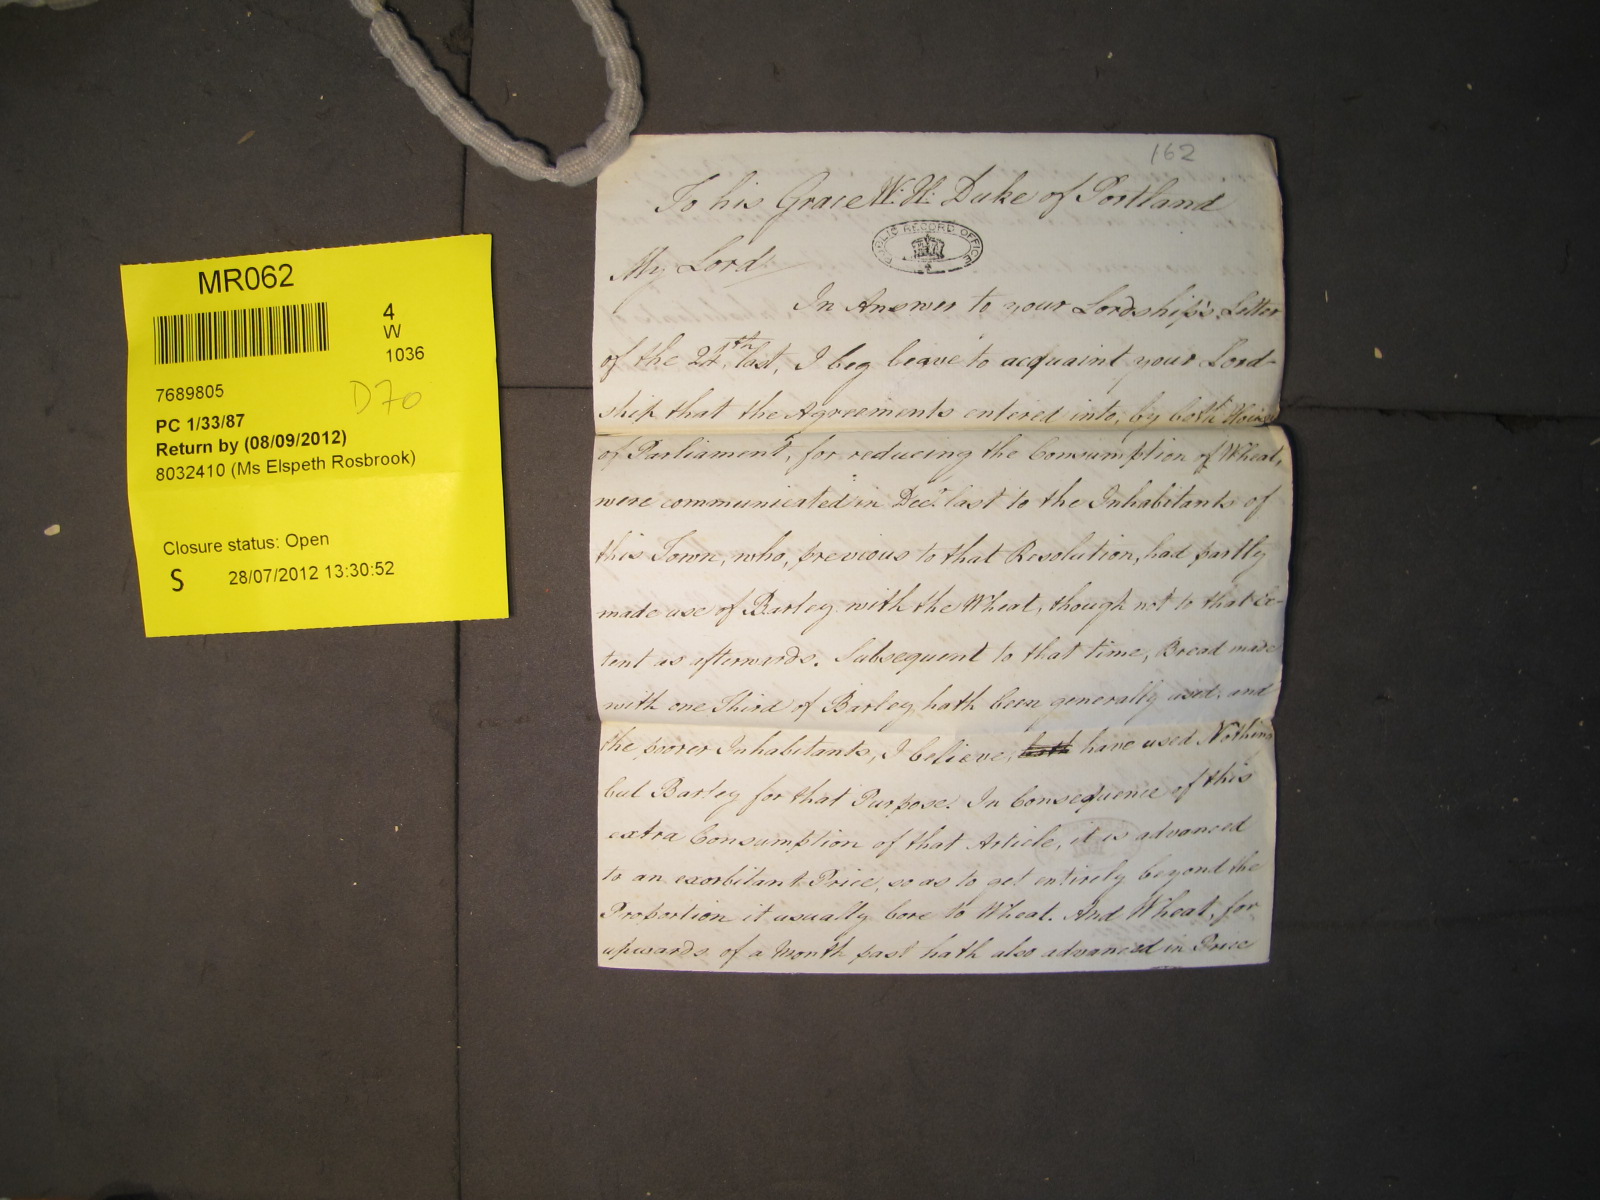 MR062
4
W
1036
7689805
D70
PC 1/33/87
Return by (08/09/2012)
8032410 (Ms Elspeth Rosbrook)
Closure status: Open
S 28/07/2012 13:30:52
162
To his Grace W: H: Duke of Portland
PUBLIC RECORD OFFICE
My Lord
In Answer to your Lordship's Letter
of the 24th last, I beg leave to acquaint your Lord-
ship that the Agreements entered into, by both Houses
of Parliament, for reducing the Consumption of Wheat,
were communicated in Decr. last to the Inhabitants of
this Town, who, previous to that Resolution, had partly
made use of Barley with the Wheat, though not to that Ex-
tent as afterwards. Subsequent to that time, Bread made
with one Third of Barley hath been generally used, and
the poorer Inhabitants, I believe, hath have used Nothing
but Barley for that Purpose. In Consequence of this
extra Consumption of that Article, it is advanced
to an exorbitant Price, so as to get entirely beyond the
Proportion it usually bore to Wheat. And Wheat, for
upwards of a Month past hath also advanced in Price